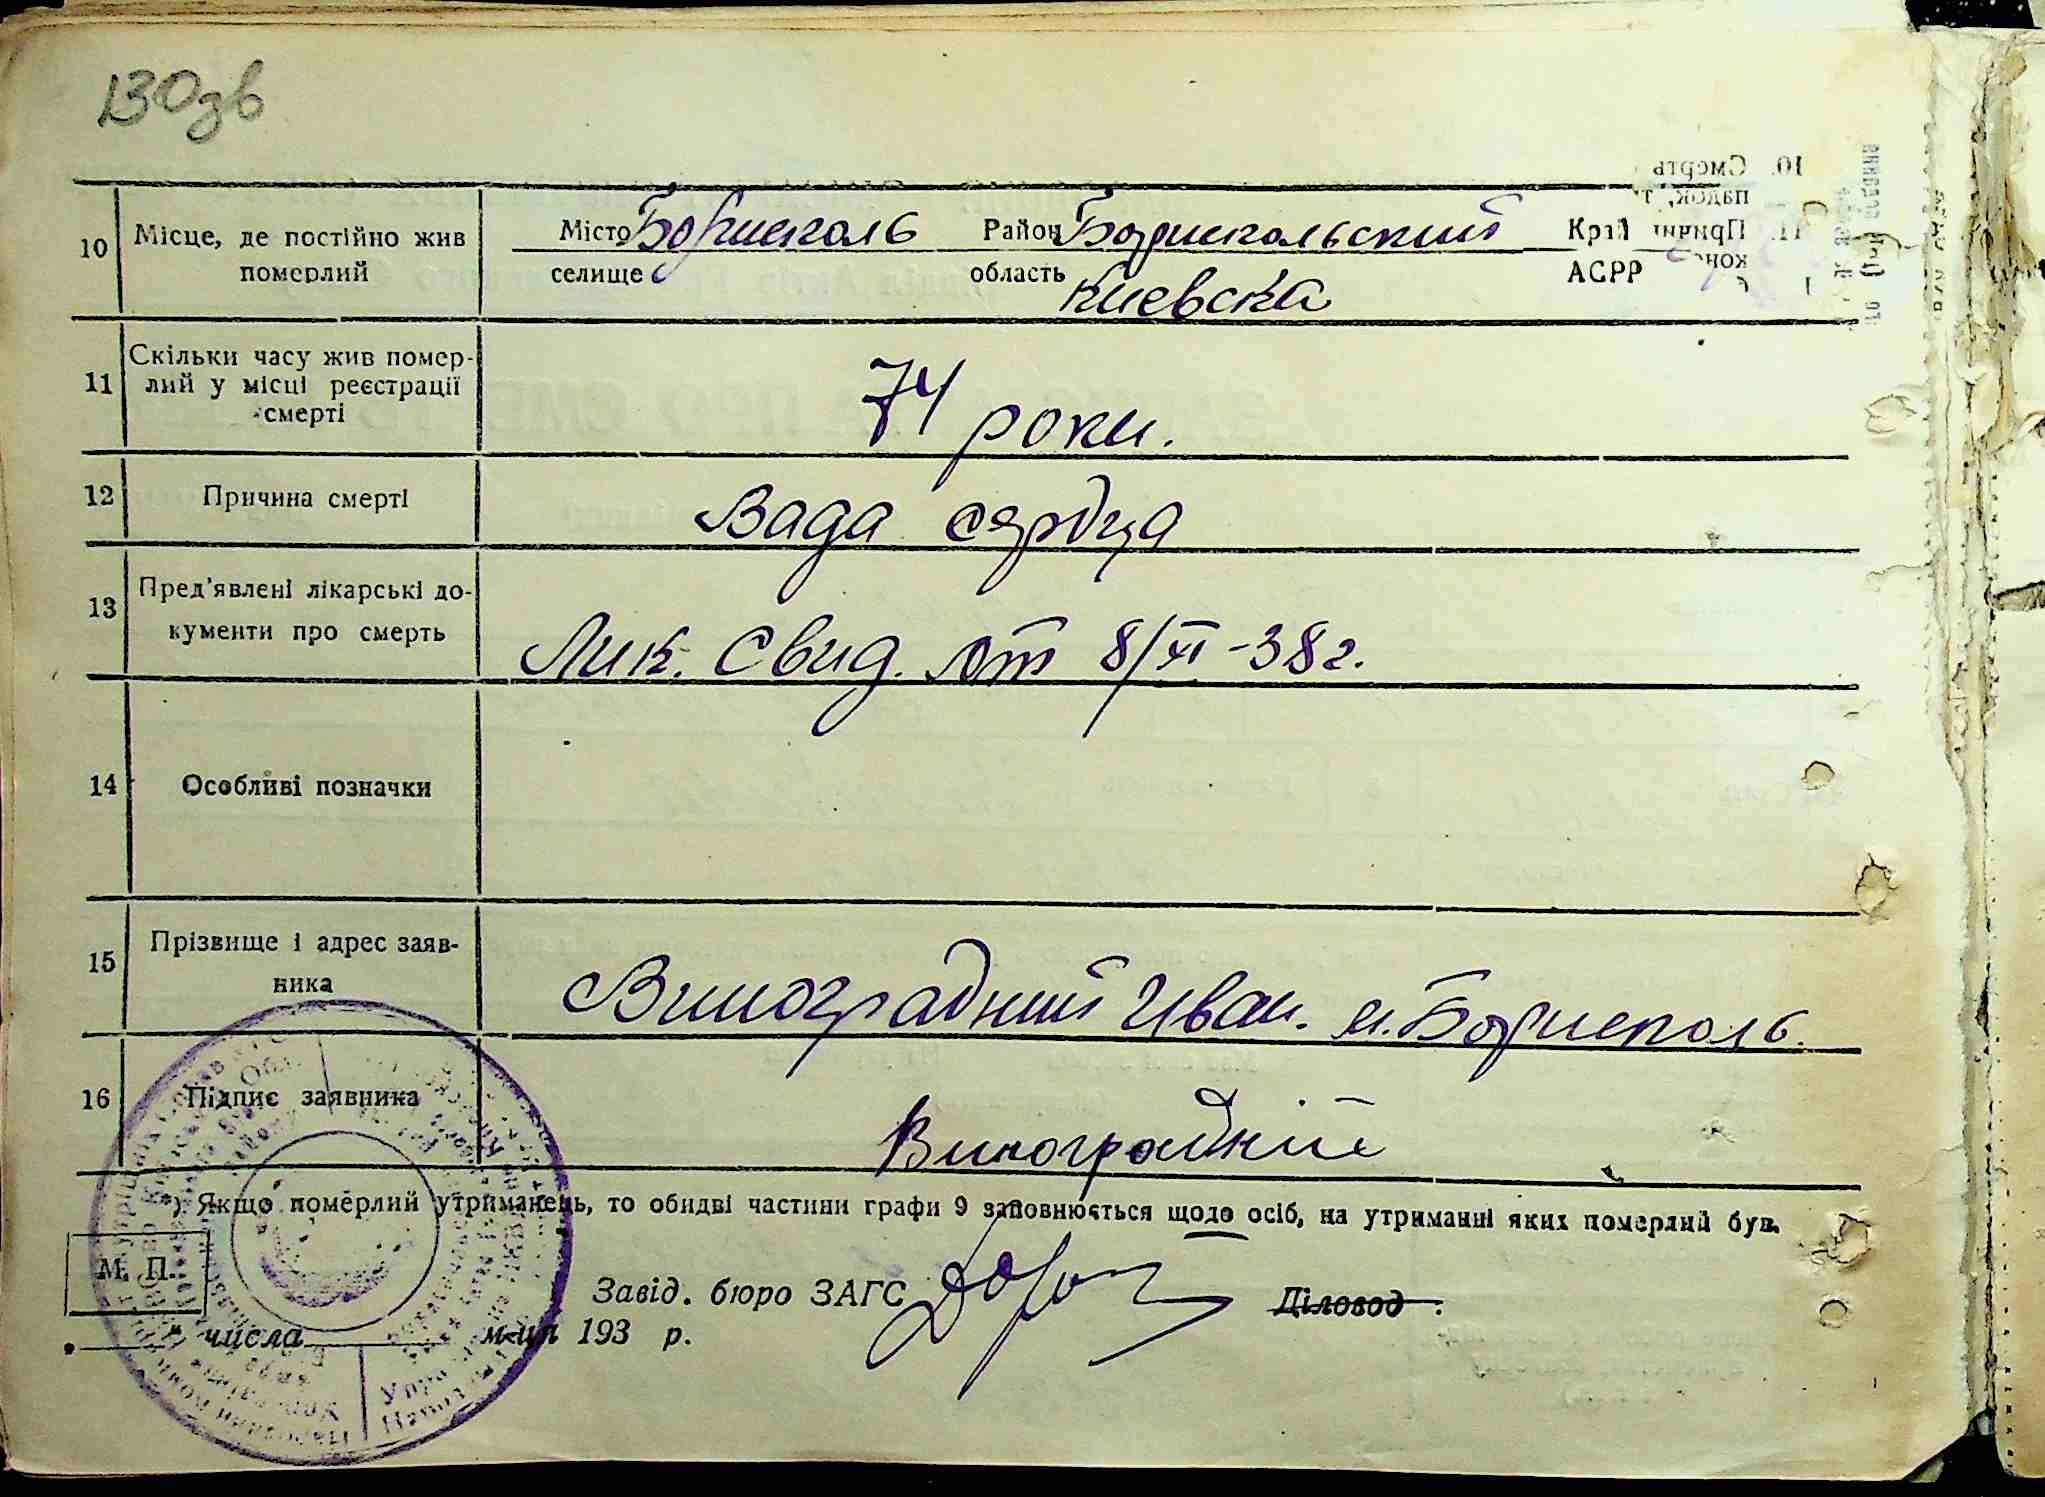 130зв
10 Місце, де постійно жив померлий
Місто Борисполь Район Бориспольский Край
селище область Киевска АСРР
11 Скільки часу жив помер-
лий у місці реєстрації
смерті
74 роки.
12 Причина смерті Вада сердца
13 Пред'явлені лікарські до-
кументи про смерть
Лик. Свид. от 8/XI-38 г.
14 Особливі позначки
15 Прізвище і адрес заяв-
ника
Виноградний Иван. м. Борисполь.
16 Підпис заявника
Виноградній
*) Якщо померлий утриманець, то обидві частини графи 9 заповнюється щодо осіб, на утриманні яких померлий був.
М. П.
Завід. бюро ЗАГС Діловод
" числа м-ця 193 р.